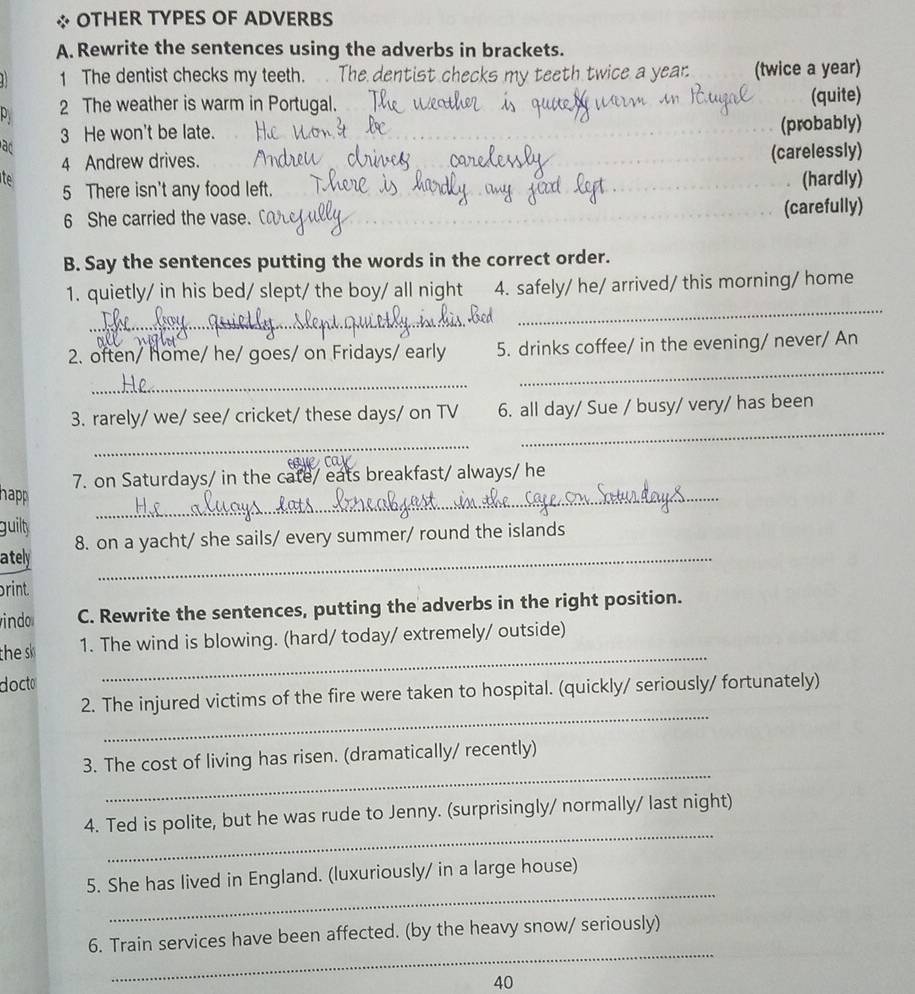 ❖ OTHER TYPES OF ADVERBS
A. Rewrite the sentences using the adverbs in brackets.
1 The dentist checks my teeth. The dentist checks my teeth twice a year. (twice a year)
2 The weather is warm in Portugal. The weather is warm in (quite)
3 He won't be late. He won't be (probably)
4 Andrew drives. Andrew drives carelessly (carelessly)
5 There isn't any food left. There is hardly any food left (hardly)
6 She carried the vase. carefully (carefully)
B. Say the sentences putting the words in the correct order.
1. quietly/ in his bed/ slept/ the boy/ all night
The boy slept quietly in his bed
all night
2. often/ home/ he/ goes/ on Fridays/ early
He
3. rarely/ we/ see/ cricket/ these days/ on TV
4. safely/ he/ arrived/ this morning/ home
5. drinks coffee/ in the evening/ never/ An
6. all day/ Sue / busy/ very/ has been
7. on Saturdays/ in the cafe/ eats breakfast/ always/ he
He always eats breakfast in the cafe on Saturdays
8. on a yacht/ she sails/ every summer/ round the islands
C. Rewrite the sentences, putting the adverbs in the right position.
1. The wind is blowing. (hard/ today/ extremely/ outside)
2. The injured victims of the fire were taken to hospital. (quickly/ seriously/ fortunately)
3. The cost of living has risen. (dramatically/ recently)
4. Ted is polite, but he was rude to Jenny. (surprisingly/ normally/ last night)
5. She has lived in England. (luxuriously/ in a large house)
6. Train services have been affected. (by the heavy snow/ seriously)
40
happ
guilty
ately
print.
the sk